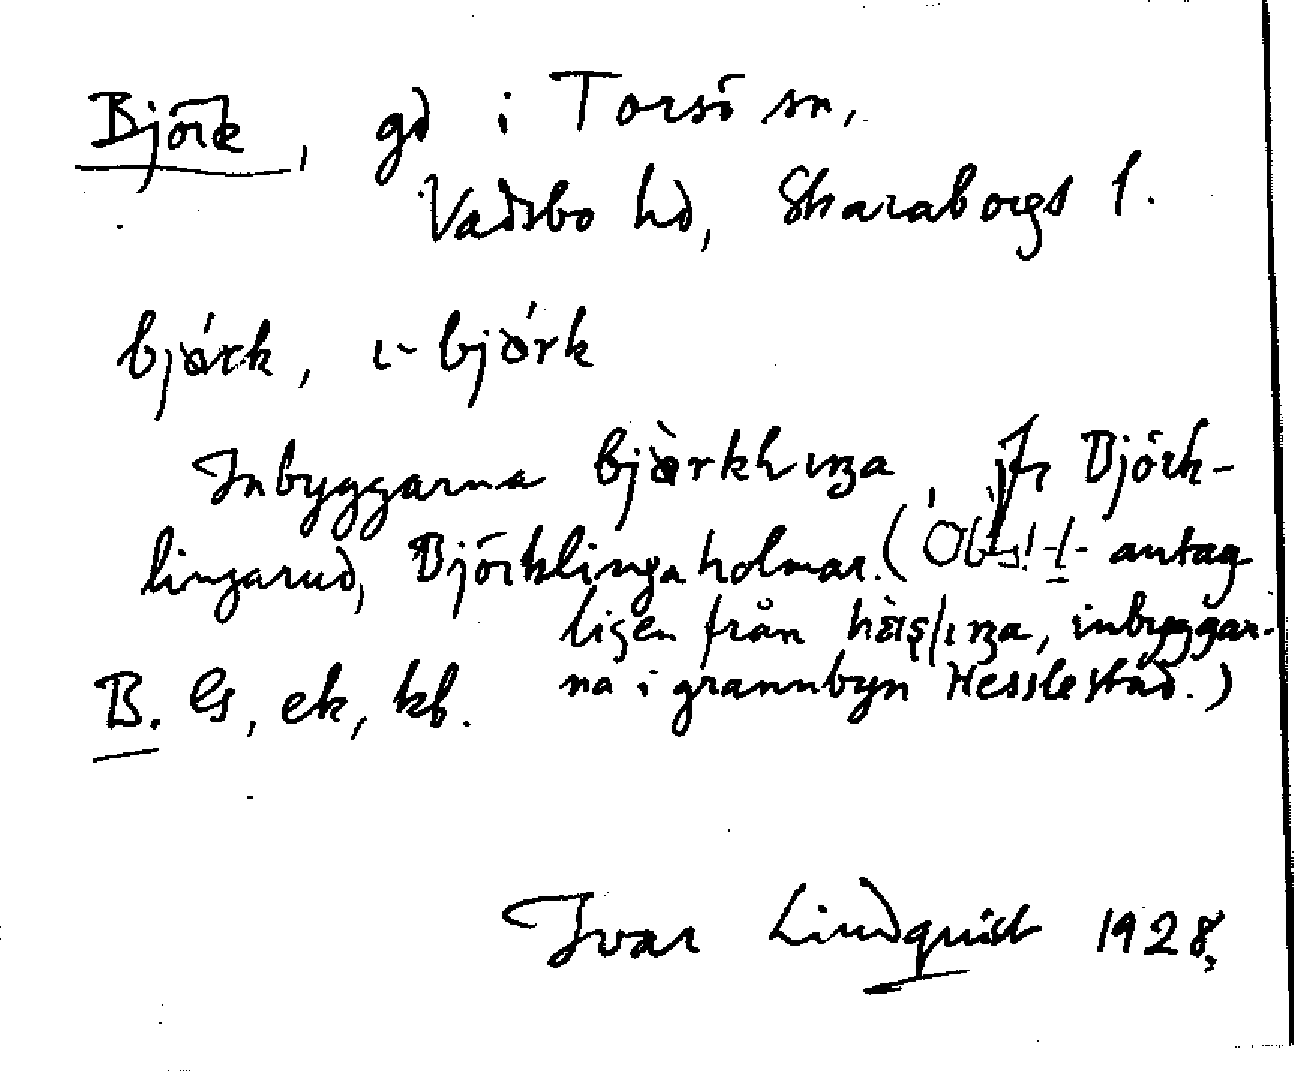 Björk, gd i Torsö sn,
Vadsbo hd, Skaraborgs l.
bjǿrk, ı- bjǿrk
Inbyggarna, jfr Björk-
lingarud, Björklingaholmar. (Obs! -l- antag
ligen från, inbyggar-
na i grannbyn Hesslestad.)
B. Gs, ek, kb.
Ivar Lindquist 1928.